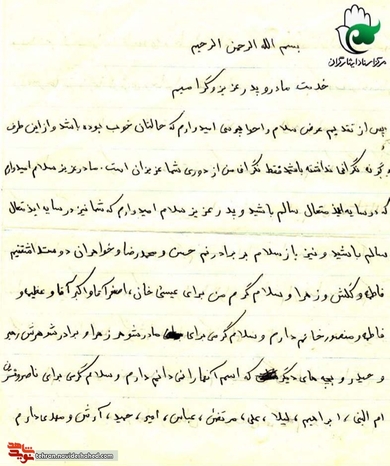 مرکز اسناد ایثارگران
بسم الله الرحمن الرحیم
خدمت مادر و پدر عزیز و گرامیم
پس از تقدیم عرض سلام و احوالپرسی امیدوارم که حالتان خوب بوده باشد و از این طرف
هیچگونه نگرانی نداشته باشید فقط نگرانی من از دوری شما عزیزان است. مادر عزیز سلام امیدوارم
که در سایه ایزد متعال سالم باشید و پدر عزیز سلام امیدوارم که شما نیز در سایه ایزد متعال
سالم باشید و نیز باز سلام بر برادرانم حسن و حمیدرضا و خواهران دوست داشتنیم
فاطمه و گلشن و زهرا و سلام گرم من برای عیسی خان، اصغر آقا و اکبر آقا و عظیمه و
فاطمه و منصور خانم دارم و سلام گرمی برای مادر شوهر زهرا و برادر شوهرش رهبر
و حمید و بچه های دیگر که اسم آنها را نمی دانم دارم و سلام گرمی برای ناصر و
ام البنی، ابراهیم، لیلا، علی، مرتضی، عباس، امیر، حمید، آرش و مهدی دارم
نوید شاهد
tehran.navideshahed.com